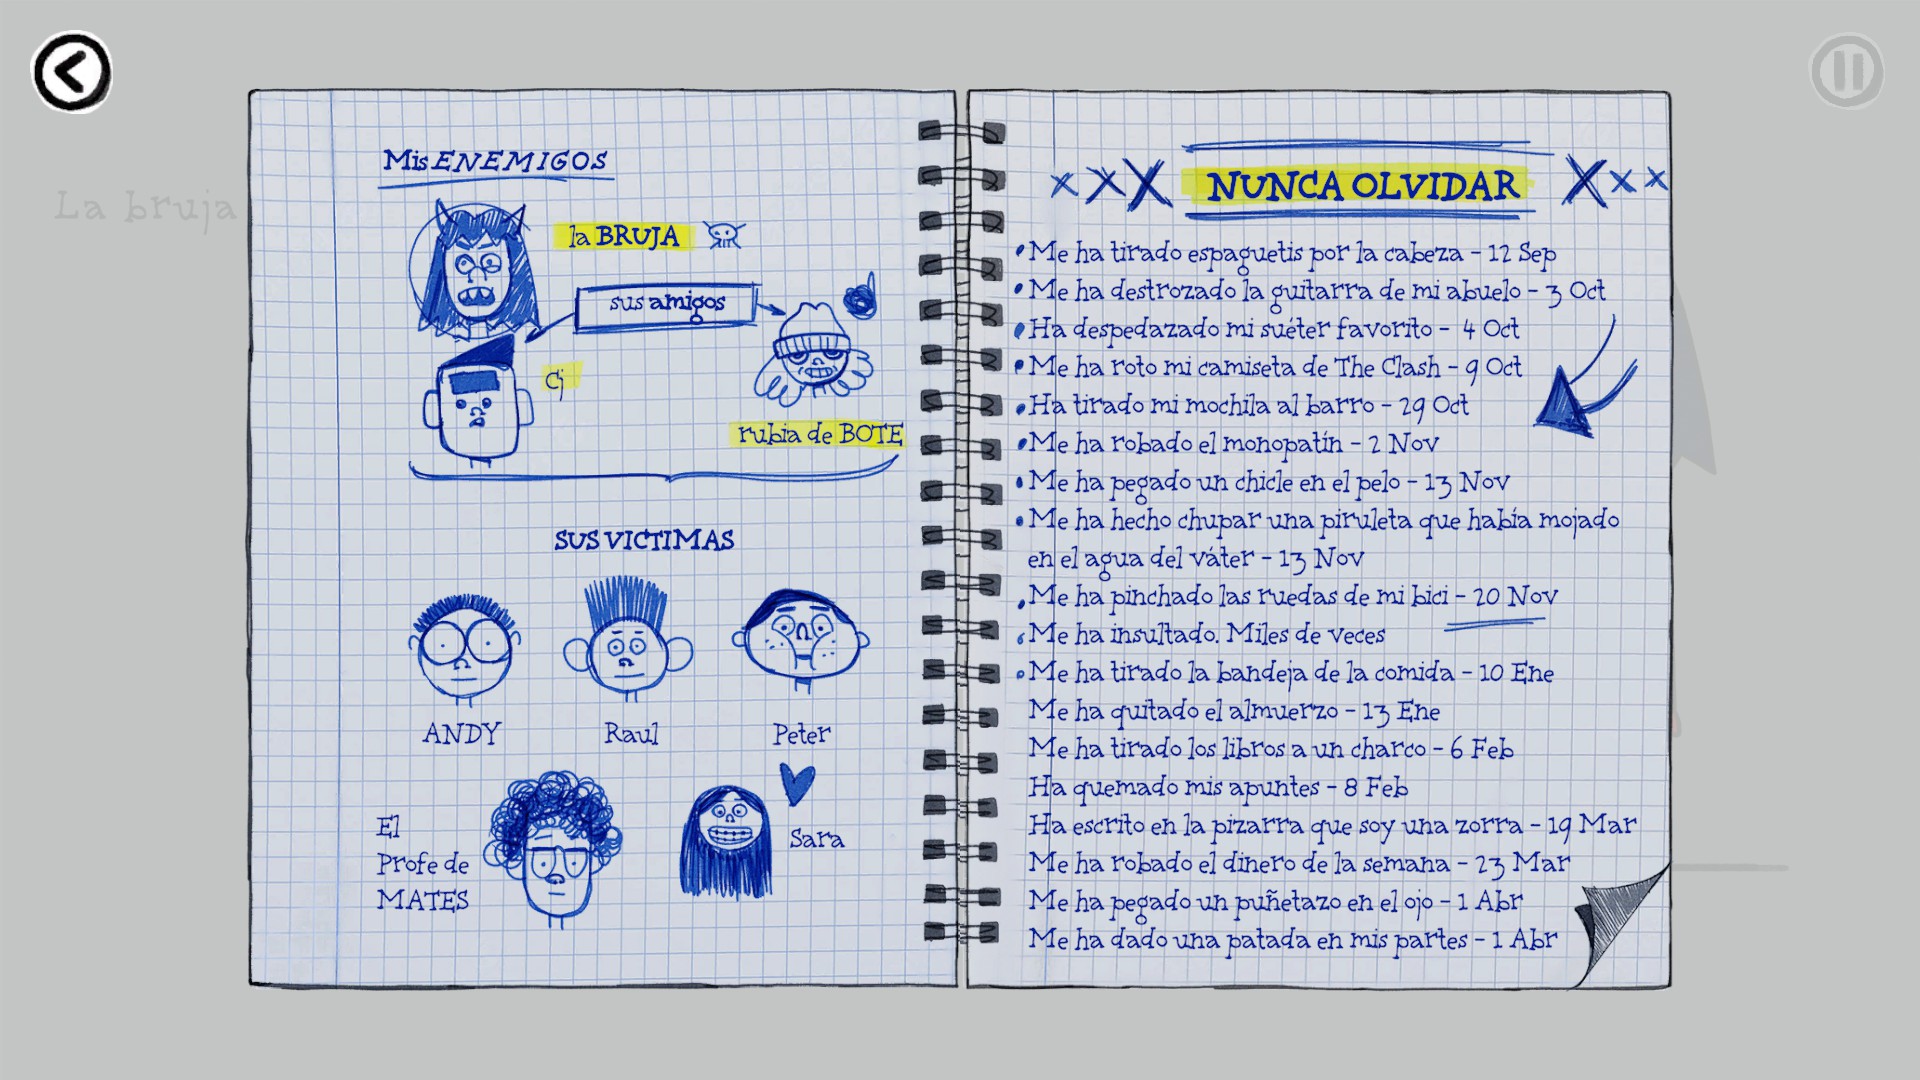 La bruja
Mis ENEMIGOS
la BRUJA
sus amigos
Cj
rubia de BOTE
SUS VICTIMAS
ANDY
Raul
Peter
El
Profe de
MATES
Sara
NUNCA OLVIDAR
•Me ha tirado espaguetis por la cabeza - 12 Sep
•Me ha destrozado la guitarra de mi abuelo - 3 Oct
•Ha despedazado mi suéter favorito - 4 Oct
•Me ha roto mi camiseta de The Clash - 9 Oct
•Ha tirado mi mochila al barro - 29 Oct
•Me ha robado el monopatín - 2 Nov
•Me ha pegado un chicle en el pelo - 13 Nov
•Me ha hecho chupar una piruleta que había mojado
en el agua del váter - 13 Nov
•Me ha pinchado las ruedas de mi bici - 20 Nov
•Me ha insultado. Miles de veces
•Me ha tirado la bandeja de la comida - 10 Ene
Me ha quitado el almuerzo - 13 Ene
Me ha tirado los libros a un charco - 6 Feb
Ha quemado mis apuntes - 8 Feb
Ha escrito en la pizarra que soy una zorra - 19 Mar
Me ha robado el dinero de la semana - 23 Mar
Me ha pegado un puñetazo en el ojo - 1 Abr
Me ha dado una patada en mis partes - 1 Abr